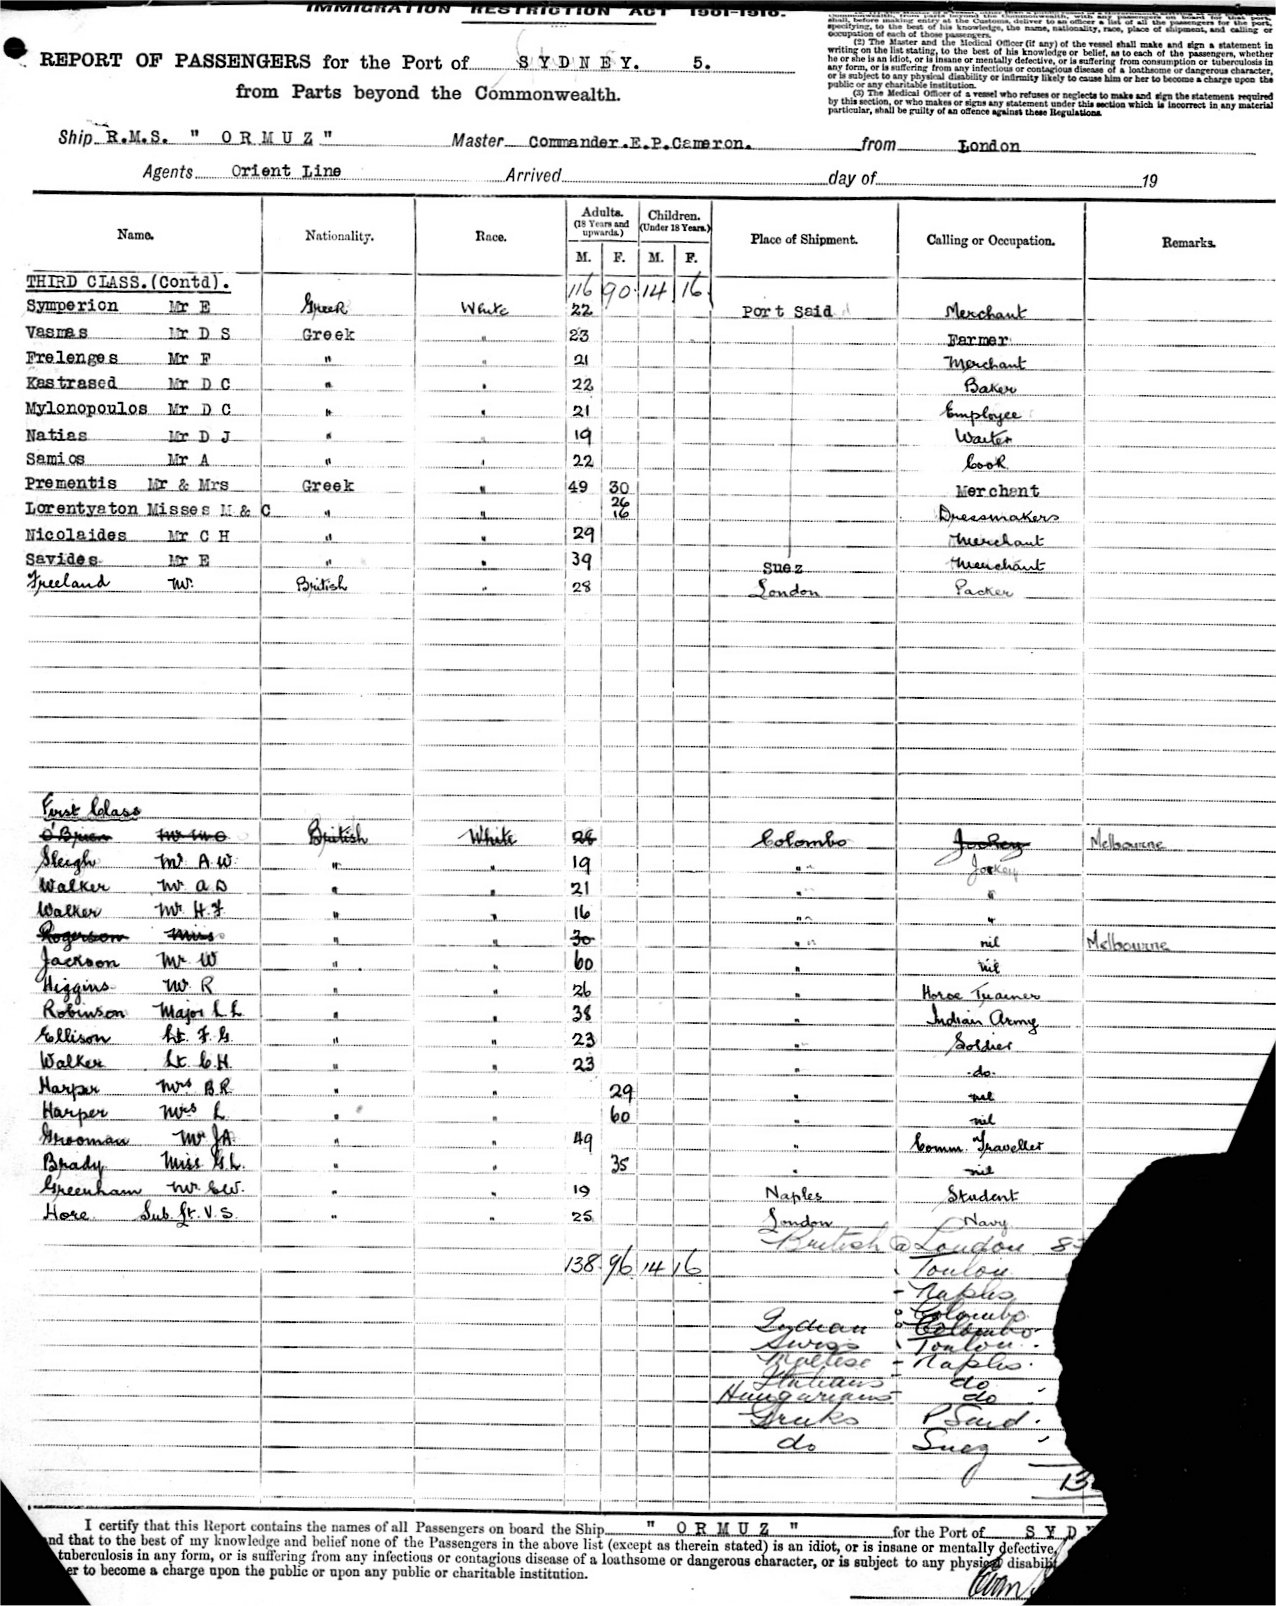 IMMIGRATION RESTRICTION ACT 1901-1910.
Commonwealth, from parts beyond the Commonwealth, with any passengers on board for that port,
shall, before making entry at the Customs, deliver to an officer a list of all the passengers for the port,
specifying, to the best of his knowledge, the name, nationality, race, place of shipment, and calling or
occupation of each of those passengers.
(2) The Master and the Medical Officer (if any) of the vessel shall make and sign a statement in
writing on the list stating, to the best of his knowledge or belief, as to each of the passengers, whether
he or she is an idiot, or is insane or mentally defective, or is suffering from consumption or tuberculosis in
any form, or is suffering from any infectious or contagious disease of a loathsome or dangerous character,
or is subject to any physical disability or infirmity likely to cause him or her to become a charge upon the
public or any charitable institution.
(3) The Medical Officer of a vessel who refuses or neglects to make and sign the statement required
by this section, or who makes or signs any statement under this section which is incorrect in any material
particular, shall be guilty of an offence against these Regulations.
REPORT OF PASSENGERS for the Port of SYDNEY. 5.
from Parts beyond the Commonwealth.
Ship R.M.S. " ORMUZ " Master Commander.E.P.Cameron. from London
Agents Orient Line Arrived day of 19
Name. Nationality. Race. Adults. (18 Years and upwards.) M. F. Children. (Under 18 Years.) M. F. Place of Shipment. Calling or Occupation. Remarks.
THIRD CLASS.(Contd). 116 90 14 16
Symperion Mr E Greek White 22 Port Said Merchant
Vasmas Mr D S Greek " 23 Farmer
Frelenges Mr F " " 21 Merchant
Kastrased Mr D C " " 22 Baker
Mylonopoulos Mr D C " " 21 Employee
Natias Mr D J " " 19 Waiter
Samios Mr A " " 22 Cook
Prementis Mr & Mrs Greek " 49 30 Merchant
Lorentyaton Misses M & C " " 26 16 Dressmakers
Nicolaides Mr C H " " 29 Merchant
Savides Mr E " " 39 Suez Merchant
Freeland Mr. British " 28 London Packer
First Class
O'Brien Mr British White 26 Colombo Jockey Melbourne
Sleigh Mr A.W. " 19 " Jockey
Walker Mr A D " " 21 " "
Walker Mr H.F. " " 16 " "
Rogerson Miss " " 30 " nil Melbourne
Jackson Mr W " " 60 " nil
Higgins Mr R " " 26 " Horse Trainer
Robinson Major L L " " 38 " Indian Army
Ellison Lt. F. G. " " 23 " Soldier
Walker Lt. C.H. " " 23 " do.
Harper Mrs B.R. " " 29 " nil
Harper Mrs L " " 60 " nil
Grooman Mr J A. " " 49 " Comm. Traveller
Brady Miss G.L. " " 35 " nil
Greenham Mr. C.W. " " 19 Naples Student
Hore Sub. Lt. V.S. " " 25 London Navy
British @ London
138 96 14 16 Toulon
Naples
Colombo
Indian Colombo
Swiss Toulon
Maltese - Naples.
Italians do
Hungarians do
Greeks P Said.
do Suez
I certify that this Report contains the names of all Passengers on board the Ship " ORMUZ " for the Port of SYD
nd that to the best of my knowledge and belief none of the Passengers in the above list (except as therein stated) is an idiot, or is insane or mentally defective,
tuberculosis in any form, or is suffering from any infectious or contagious disease of a loathsome or dangerous character, or is subject to any physical disabili
er to become a charge upon the public or upon any public or charitable institution.